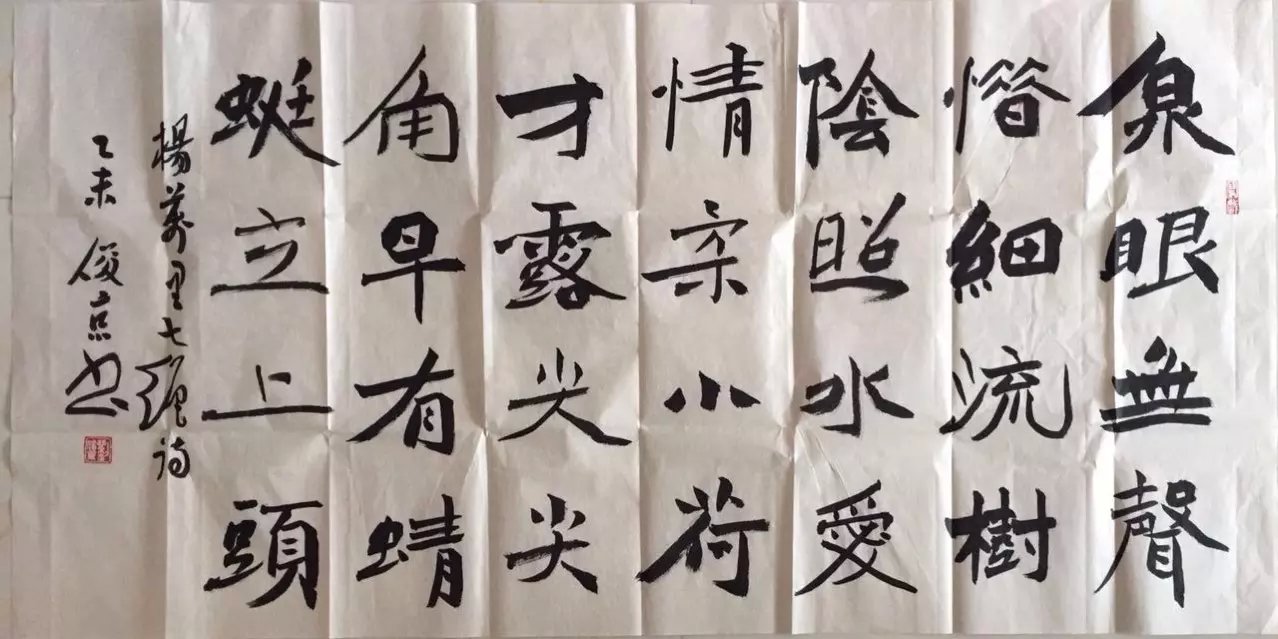 泉眼無聲
惜細流樹
陰照水愛
情柔小荷
才露尖尖
角早有蜻
蜓立上頭
楊萬里七絕詩
乙未 俊京书